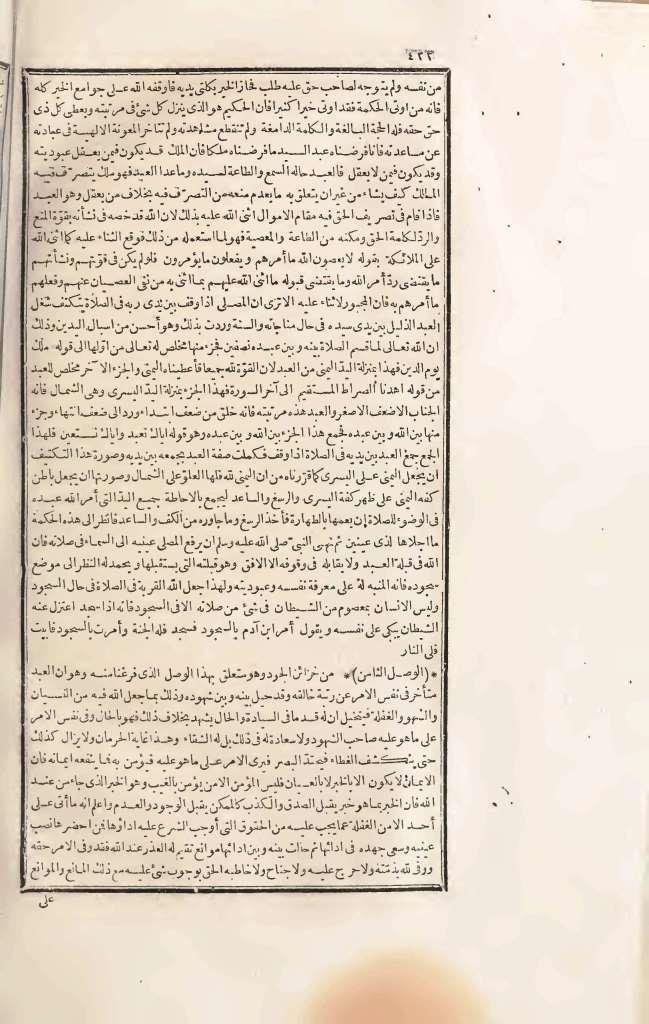 ٤٢٢
من نفسه ولم يتوجه لصاحب حق عليه طلب فحاز الخير بكلتى يديه فاوقفه الله على جوامع الخير كله
فانه من اوتى الحكمة فقد اوتى خيرا كثيرا فان الحكيم هو الذى ينزل كل شئ فى مرتبته ويعطى كل ذى
حق حقه فله الحجة البالغة والكلمة الدامغة ولم تنقطع مشاهدته ولم تتاخر المعونة الالهية فى عبادته
عن مساعدته فانا فرضناه عبد السيد ما فرضناه ملكا فان الملك قد يكون فيمن يعقل عبوديته
وقد يكون فيمن لا يعقل فالعبد حاله السمع والطاعة لسيده وما عدا العبد فهو ملك يتصرّف فيه
المالك كيف يشاء من غير ان يتعلق به ما بعدم منعه من التصرّف فيه بخلاف من يعقل وهو العبد
فاذا اقام فى تصريف الحق فيه مقام الاموال اثنى الله عليه بذلك لان الله قد خصه فى نشأته بقوّة المنع
والردّ لكلمة الحق ومكنه من الطاعة والمعصية فهو لما استعمله من ذلك فوقع الثناء عليه كما اثنى الله
على الملائكة بقوله لا يعصون الله ما أمرهم ويفعلون ما يؤمرون فلو لم يكن فى قوّتهم ونشأتهم
ما يقتضى ردّ أمر الله وما يقتضى قبوله ما اثنى الله عليهم بما اثنى به من نفى العصيان عنهم وفعلهم
ما أمرهم به فان المجبور لا ثناء عليه الا ترى ان المصلى اذا وقف بين يدى ربه فى الصلاة يتكتف شغل
العبد الذليل بين يدى سيده فى حال مناجاته والسنة وردت بذلك وهو أحسن من اسبال اليدين وذلك
ان الله تعالى لما قسم الصلاة بينه وبين عبده نصفين فجزء منها مخلص له تعالى من اوّلها الى قوله ملك
يوم الدين فهذا بمنزلة اليدّ اليمنى من العبد لان القوّة لله جميعا فأعطيناه اليمنى والجزء الآخر مخلص للعبد
من قوله اهدنا الصراط المستقيم الى آخر السورة فهذا الجزء بمنزلة اليدّ اليسرى وهى الشمال فانه
الجناب الاضعف الاصغر والعبد هذه مرتبته فانه خلق من ضعف ابتداء وردّ الى ضعف انتهاء وجزء
منها بين الله وبين عبده فجمع هذا الجزء بين الله وبين عبده وهو قوله اياك نعبد واياك نستعين فلهذا
الجمع جمع العبد بين يديه فى الصلاة اذا وقف فكملت صفة العبد بجمعه بين يديه وصورة هذا التكتيف
ان يجعل اليمنى على اليسرى كما قرّرناه من ان اليمنى لله فلها العلوّ على الشمال وصورتها ان يجعل باطن
كفه اليمنى على ظهر كفه اليسرى والرسغ والساعد ليجمع بالاحاطة جميع اليدّ التى أمر الله عبده
فى الوضوء للصلاة ان يعمها بالطهارة فأخذ الرسغ وما جاوره من الكف والساعد فانظر الى هذه الحكمة
ما اجلاها لذى عينين ثم نهى النبىّ صلى الله عليه وسلم ان يرفع المصلى عينيه الى السماء فى صلاته فان
الله فى قبلة العبد ولا يقابله فى وقوفه الا الافق وهو قبلته التى يستقبلها ويحمد له النظر الى موضع
سجوده فانه المنبه له على معرفة نفسه وعبوديته ولهذا جعل الله القربة فى الصلاة فى حال السجود
وليس الانسان بمعصوم من الشيطان فى شئ من صلاته الا فى السجود فانه اذا سجد اعتزل عنه
الشيطان يبكى على نفسه ويقول أمر ابن آدم بالسجود فسجد فله الجنة وأمرت بالسجود فابيت
فلى النار
*(الوصل الثامن)* من خزائن الجود وهو متعلق بهذا الوصل الذى فرغنا منه وهو ان العبد
متأخر فى نفس الامر عن رتبة خالقه وقد حيل بينه وبين شهوده وذلك بما جعل الله فيه من النسيان
والسهو والغفلة فيتخيل ان له قدما فى السيادة والحال يشهد بخلاف ذلك فهو بالحال وفى نفس الامر
على ما هو عليه صاحب الشهود ولا سعادة له فى ذلك بل له الشقاء وهذا غاية الحرمان ولا يزال كذلك
حتى ينكشف الغطاء فيحتدّ البصر فيرى الامر على ما هو عليه فيؤمن به فما ينفعه ايمانه فان
الايمان لا يكون الا بالخبر لا بالعيان فليس المؤمن الا من يؤمن بالغيب وهو الخبر الذى جاء من عند
الله فان الخبر بما هو خبر يقبل الصدق والكذب كالممكن يقبل الوجود والعدم واعلم انه ما أتى على
أحد الا من الغفلة عما يجب عليه من الحقوق التى أوجب الشرع عليه اداؤها فمن احضرها نصب
عينيه وسعى جهده فى ادائها ثم حالت بينه وبين ادائها موانع تقيم له العذر عند الله فقد وفى الامر حقه
ووفى لله بذمّته ولا حرج عليه ولا جناح ولا خاطبه الحق بوجوب شئ عليه مع ذلك المانع والموانع
على